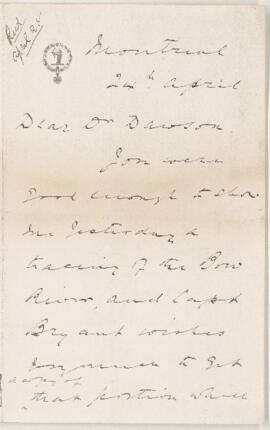 Montreal
24th April
Dear Dr Dawson
You were
good enough to show
me yesterday a
tracing of the Bow
River, and Capt
Bryant wishes
very much to get
a copy of
that portion which